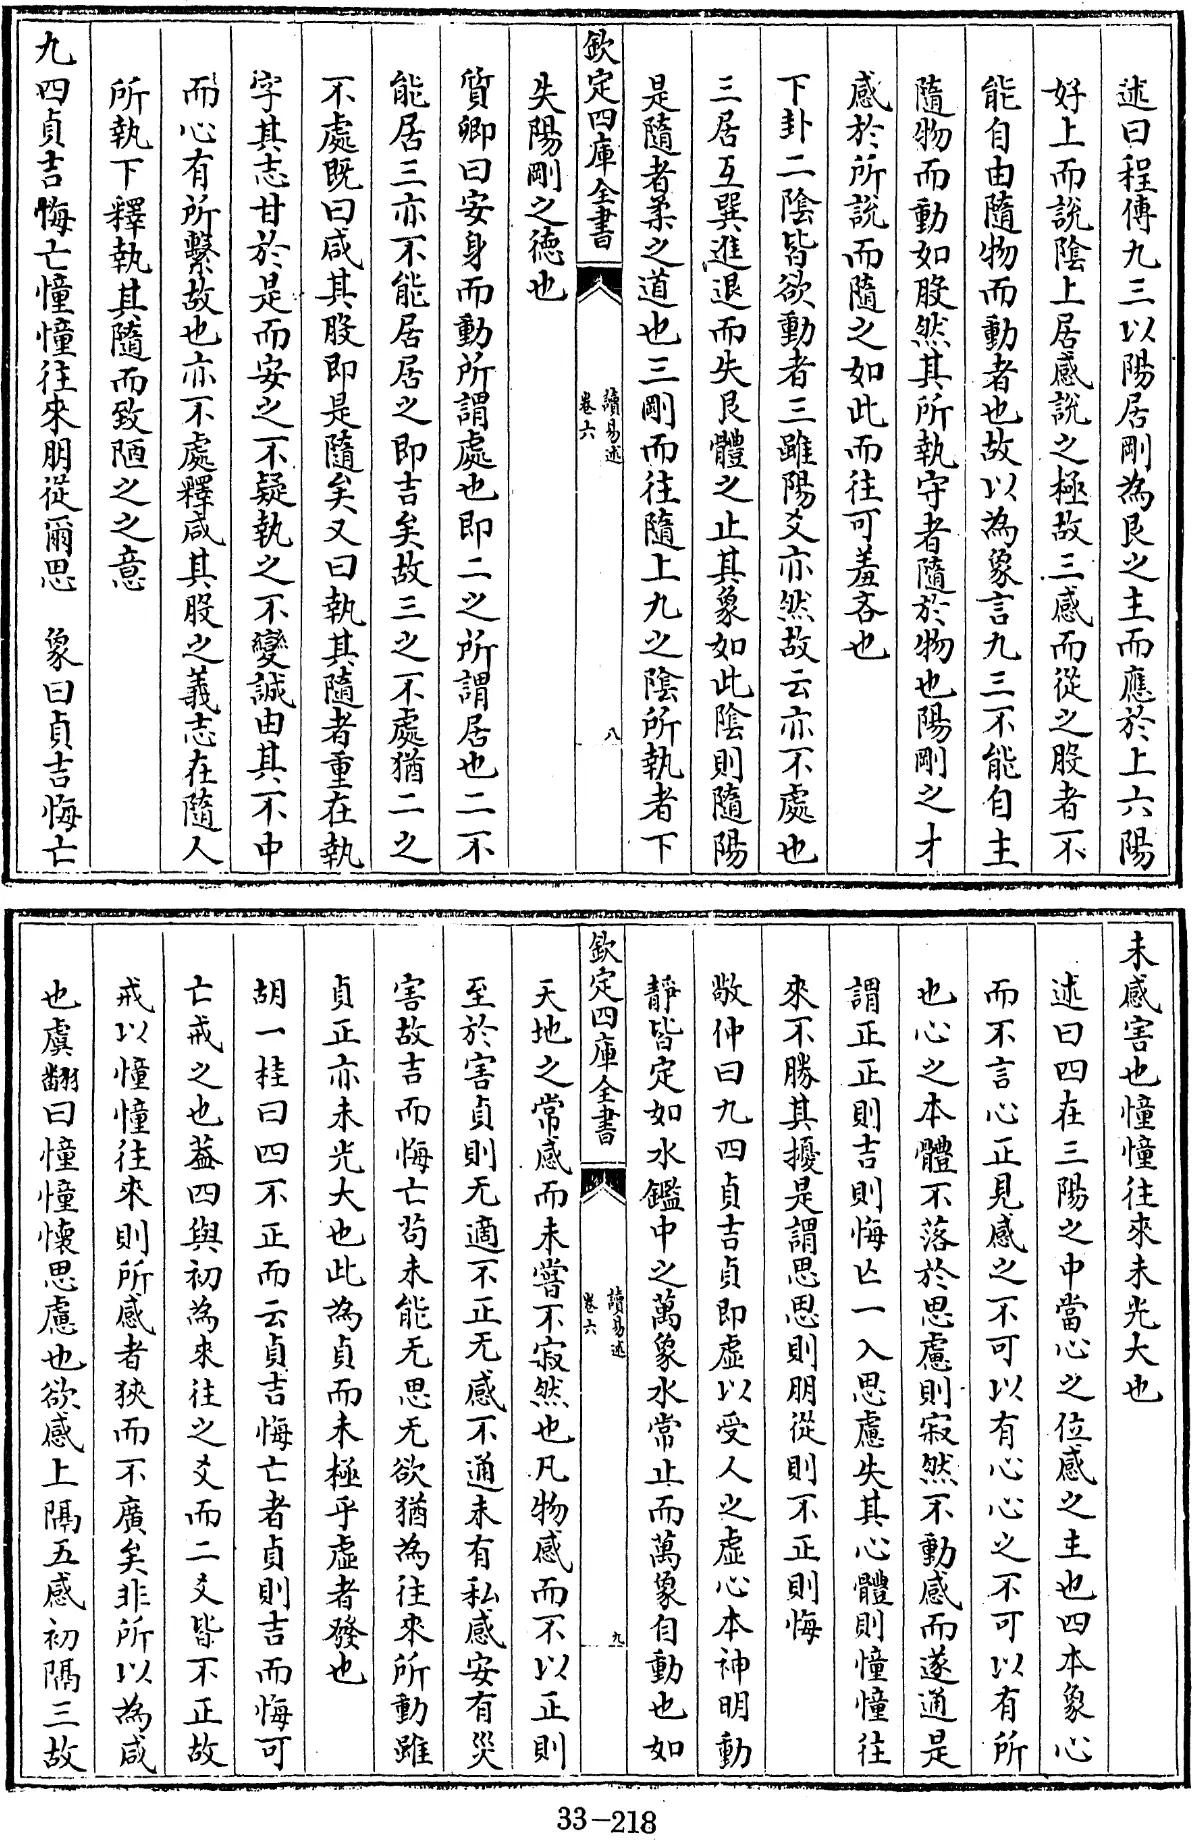 述曰程傳九三以陽居剛為艮之主而應於上六陽
好上而說陰上居感說之極故三感而從之股者不
能自由隨物而動者也故以為象言九三不能自主
隨物而動如股然其所執守者隨於物也陽剛之才
感於所說而隨之如此而往可羞吝也
下卦二陰皆欲動者三雖陽爻亦然故云亦不處也
三居互巽進退而失艮體之止其象如此陰則隨陽
是隨者柔之道也三剛而往隨上九之陰所執者下
欽定四庫全書
讀易述
卷六
八
失陽剛之德也
質卿曰安身而動所謂處也即二之所謂居也二不
能居三亦不能居居之即吉矣故三之不處猶二之
不處既曰咸其股即是隨矣又曰執其隨者重在執
字其志甘於是而安之不疑執之不變誠由其不中
而心有所繫故也亦不處釋咸其股之義志在隨人
所執下釋執其隨而致陋之之意
九四貞吉悔亡憧憧往來朋從爾思 象曰貞吉悔亡
未感害也憧憧往來未光大也
述曰四在三陽之中當心之位感之主也四本象心
而不言心正見感之不可以有心心之不可以有所
也心之本體不落於思慮則寂然不動感而遂通是
謂正正則吉則悔亡一入思慮失其心體則憧憧往
來不勝其擾是謂思思則朋從則不正則悔
敬仲曰九四貞吉貞即虛以受人之虛心本神明動
靜皆定如水鑑中之萬象水常止而萬象自動也如
欽定四庫全書
讀易述
卷六
九
天地之常感而未嘗不寂然也凡物感而不以正則
至於害貞則无適不正无感不通未有私感安有災
害故吉而悔亡苟未能无思无欲猶為往來所動雖
貞正亦未光大也此為貞而未極乎虛者發也
胡一桂曰四不正而云貞吉悔亡者貞則吉而悔可
亡戒之也葢四與初為來往之爻而二爻皆不正故
戒以憧憧往來則所感者狹而不廣矣非所以為咸
也虞翻曰憧憧懷思慮也欲感上隔五感初隔三故
33-218